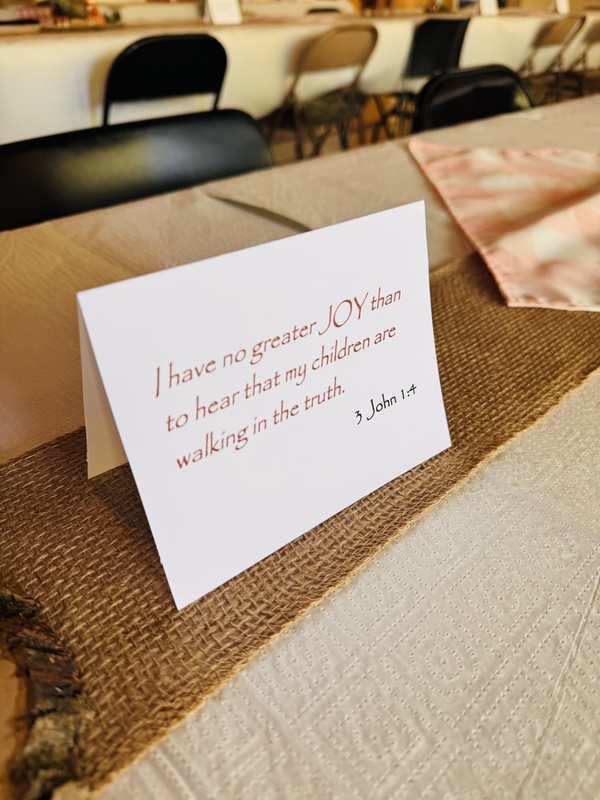 I have no greater JOY than
to hear that my children are
walking in the truth.
3 John 1:4